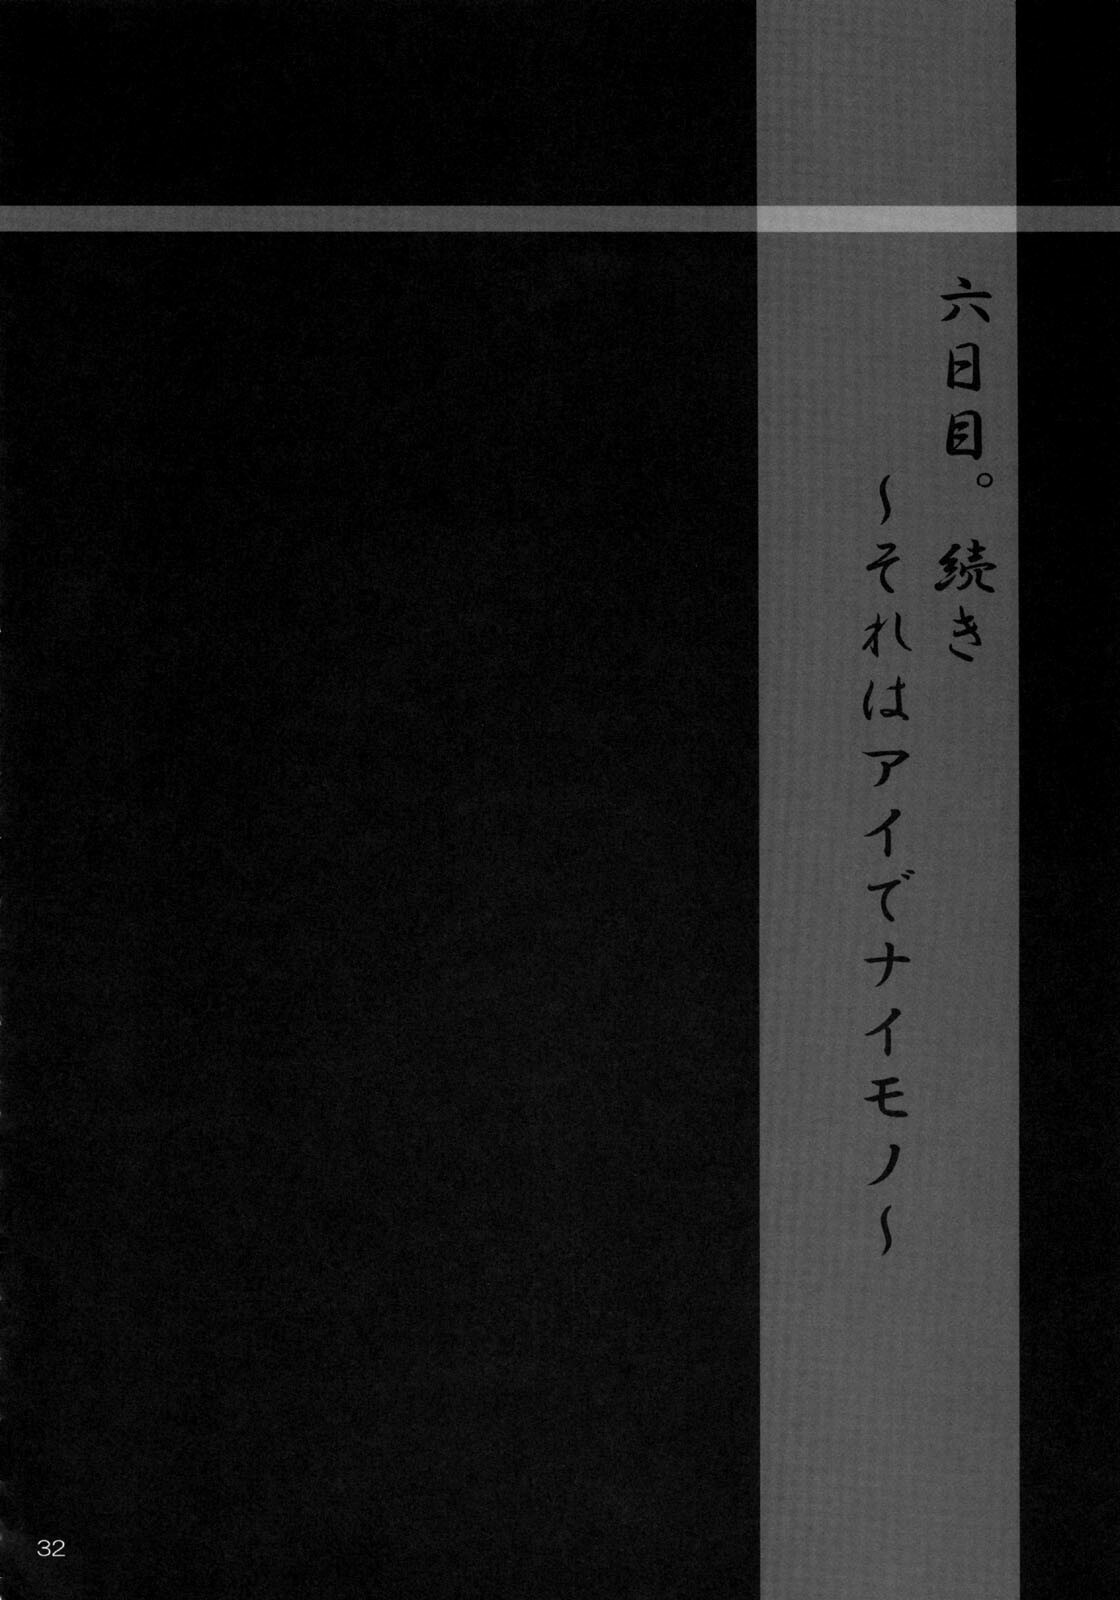 六日目。続き
～それはアイでナイモノ～
32